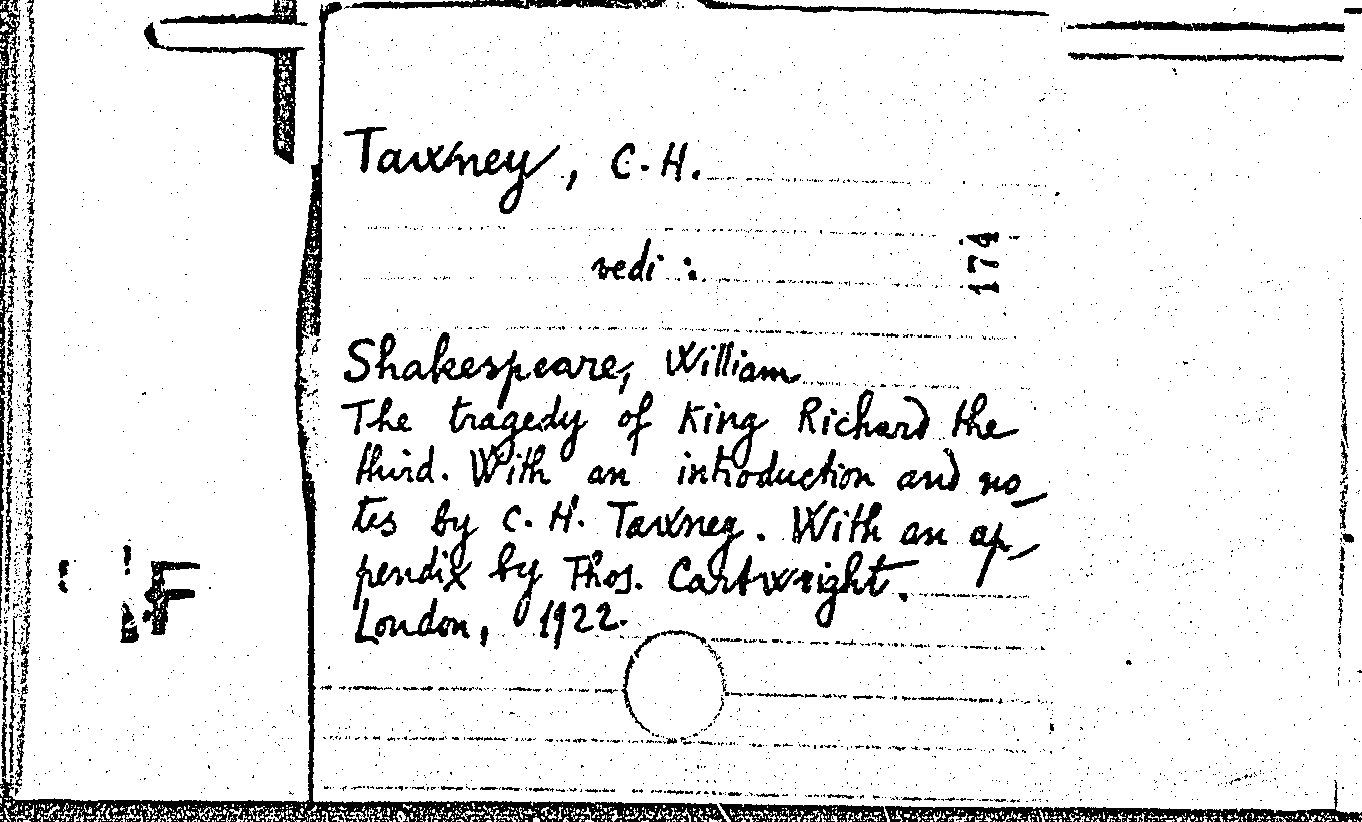 Tawney, C. H.
174
vedi :
Shakespeare, William
The tragedy of King Richard the
third. With an introduction and no_
tes by C. H. Tawney. With an ap_
pendix by Thos. Cartwright.
London, 1922.